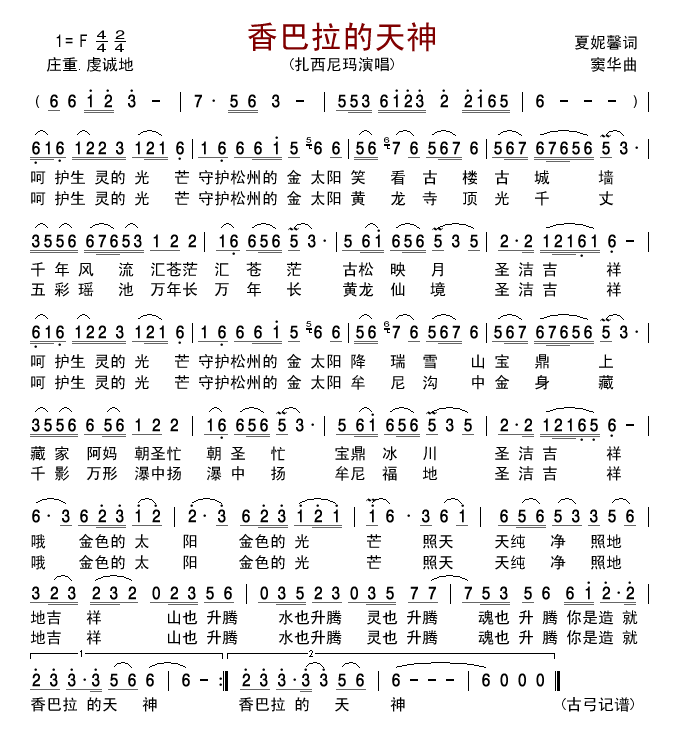 香巴拉的天神
1= F 4/4 2/4
夏妮馨词
庄重.虔诚地
(扎西尼玛演唱)
窦华曲
( 6 6 1 2 3 - | 7 · 5 6 3 - | 5 5 3 6 1 2 3 2 2 1 6 5 | 6 - - - ) |
6 1 6 1 2 2 3 1 2 1 6 | 1 6 6 6 1 5 6 6 | 5 6 7 6 5 6 7 6 | 5 6 7 6 7 6 5 6 5 3 · |
呵 护生 灵的 光 芒 守护松州的 金 太阳 笑 看 古 楼 古 城 墙
呵 护生 灵的 光 芒 守护松州的 金 太阳 黄 龙 寺 顶 光 千 丈
3 5 5 6 6 7 6 5 3 1 2 2 | 1 6 6 5 6 5 3 · | 5 6 1 6 5 6 5 3 5 | 2 · 2 1 2 1 6 1 6 - |
千 年 风 流 汇苍茫 汇 苍 茫 古松 映 月 圣 洁 吉 祥
五 彩 瑶 池 万年长 万 年 长 黄龙 仙 境 圣 洁 吉 祥
6 1 6 1 2 2 3 1 2 1 6 | 1 6 6 6 1 5 6 6 | 5 6 7 6 5 6 7 6 | 5 6 7 6 7 6 5 6 5 3 · |
呵 护生 灵的 光 芒 守护松州的 金 太阳 降 瑞 雪 山 宝 鼎 上
呵 护生 灵的 光 芒 守护松州的 金 太阳 牟 尼 沟 中 金 身 藏
3 5 5 6 6 5 6 1 2 2 | 1 6 6 5 6 5 3 · | 5 6 1 6 5 6 5 3 5 | 2 · 2 1 2 1 6 1 6 - |
藏 家 阿妈 朝圣忙 朝 圣 忙 宝鼎 冰 川 圣 洁 吉 祥
千 影 万形 瀑中扬 瀑 中 扬 牟尼 福 地 圣 洁 吉 祥
6 · 3 6 2 3 1 2 | 2 · 3 6 2 3 1 2 1 | 1 6 · 3 6 1 | 6 5 6 5 3 3 5 6 |
哦 金色的 太 阳 金色的 光 芒 照天 天纯 净 照地
哦 金色的 太 阳 金色的 光 芒 照天 天纯 净 照地
3 2 3 2 3 2 0 2 3 5 6 | 0 3 5 2 3 0 3 5 7 7 | 7 5 3 5 6 6 1 2 · 2 |
地吉 祥 山也 升腾 水也升腾 灵也 升腾 魂也 升 腾 你是造 就
地吉 祥 山也 升腾 水也升腾 灵也 升腾 魂也 升 腾 你是造 就
1 2
2 3 3 · 3 5 6 6 | 6 - :‖ 2 3 3 · 3 3 5 6 | 6 - - - | 6 0 0 0 ‖
香巴拉 的天 神 香巴拉 的 天 神 (古弓记谱)